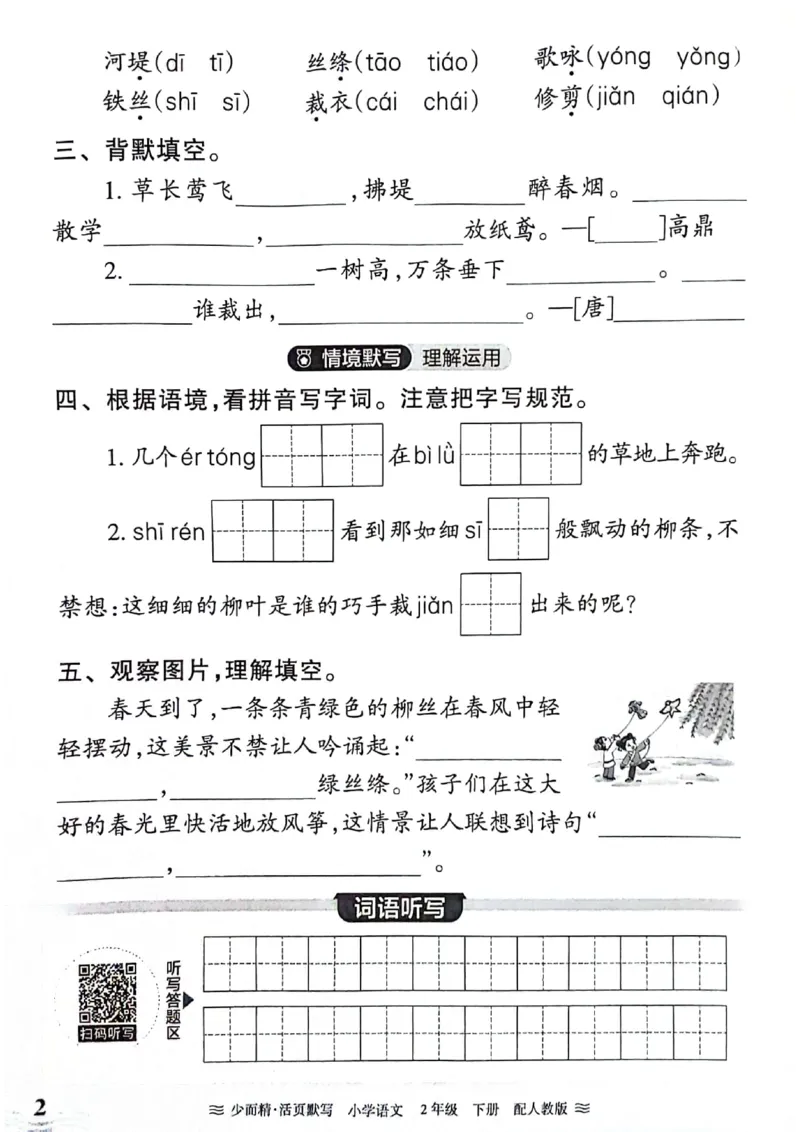 河堤(dī tī) 丝绦(tāo tiáo) 歌咏(yóng yǒng)
铁丝(shī sī) 裁衣(cái chái) 修剪(jiǎn qián)
三、背默填空。
1. 草长莺飞__________,拂堤__________醉春烟。__________
散学__________,__________放纸鸢。—[_____]高鼎
2. __________一树高,万条垂下__________。_____
__________谁裁出,__________。—[唐]__________
情境默写 理解运用
四、根据语境,看拼音写字词。注意把字写规范。
1. 几个ér tóng 在bì lǜ 的草地上奔跑。
2. shī rén 看到那如细sī 般飘动的柳条,不
禁想:这细细的柳叶是谁的巧手裁jiǎn 出来的呢?
五、观察图片,理解填空。
春天到了,一条条青绿色的柳丝在春风中轻
轻摆动,这美景不禁让人吟诵起:“__________
__________,__________绿丝绦。”孩子们在这大
好的春光里快活地放风筝,这情景让人联想到诗句“__________
__________,__________”。
词语听写
扫码听写
听写答题区
2
少而精·活页默写 小学语文 2年级 下册 配人教版